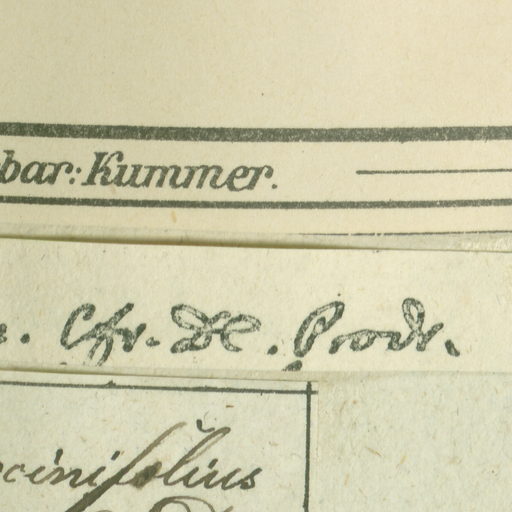 bar: Kummer.
Cfr. DC. Prodr.
cinifolius